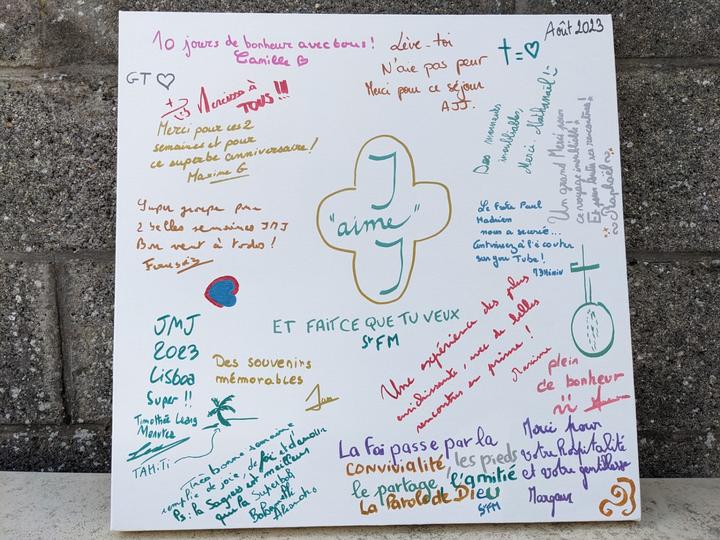 10 jours de bonheur avec vous !
Camille
Lève-toi
N'aie pas peur
Merci pour ce séjour
AJJ.
Août 2023
GT
à
TOUS !!!
Merci pour ces 2
semaines et pour
ce superbe anniversaire !
Maxime G
Des moments
inoubliables,
Merci. Nathanaël
Un grand Merci pour
ce voyage inoubliable !
Et pour toute ces rencontres !
~ Raphaël ~
Super groupe pour
2 belles semaines JMJ
Bon vent à tous !
François
J
"aime"
J
Le Frère Paul
Hadrien
nous a
Continuez à l'écouter
sur you Tube !
ET FAIT CE QUE TU VEUX
St FM
JMJ
2023
Lisboa
Super !!
Timothée
TAHITI
Des souvenirs
mémorables
Une expérience des plus
enrichissante, avec de belles
rencontres en prime !
Maxime
plein
de bonheur
Très bonne semaine
remplie de joie, de foi et d'amour
Ps : la Sagres est meilleur
que la Superbock
La foi passe par la
CONVIVIALITÉ, les pieds
le partage, l'amitié
La Parole de Dieu
St FM
Merci pour
votre hospitalité
et votre gentillesse
Margaux